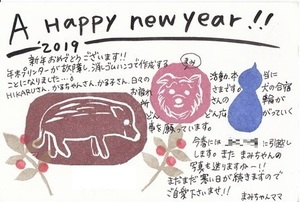 A HAPPY new year!!
2019
新年おめでとうございます!!
年末プリンターが故障し、消しゴムハンコで作成する
ことになりました…
HIKARUさん、かなちゃんさん、かる子さん、日々の
お疲れ
所
ど
まみ
活動、本当に
さまです。犬の合宿
さんの輪が
どん広がっていく
事を願っています。
今春には に引越し
します。また まみちゃんの
写真を送りますねー!!
まだまだ寒い日が続きますので
ご自愛下さいませ!!
まみちゃんママ